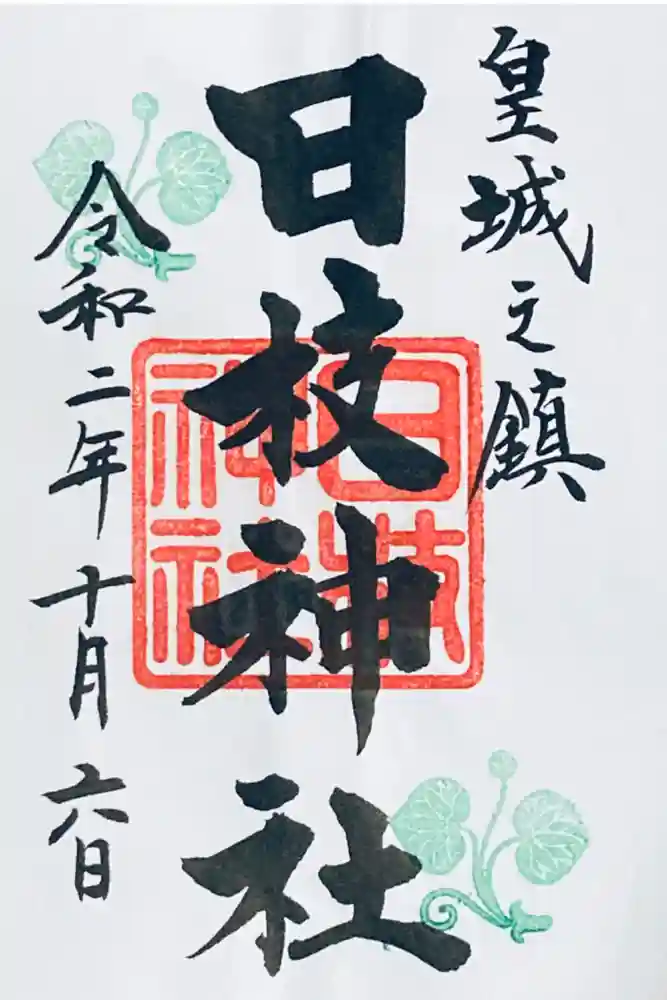 皇城之鎮
日枝神社
日枝
神社
令和二年十月六日